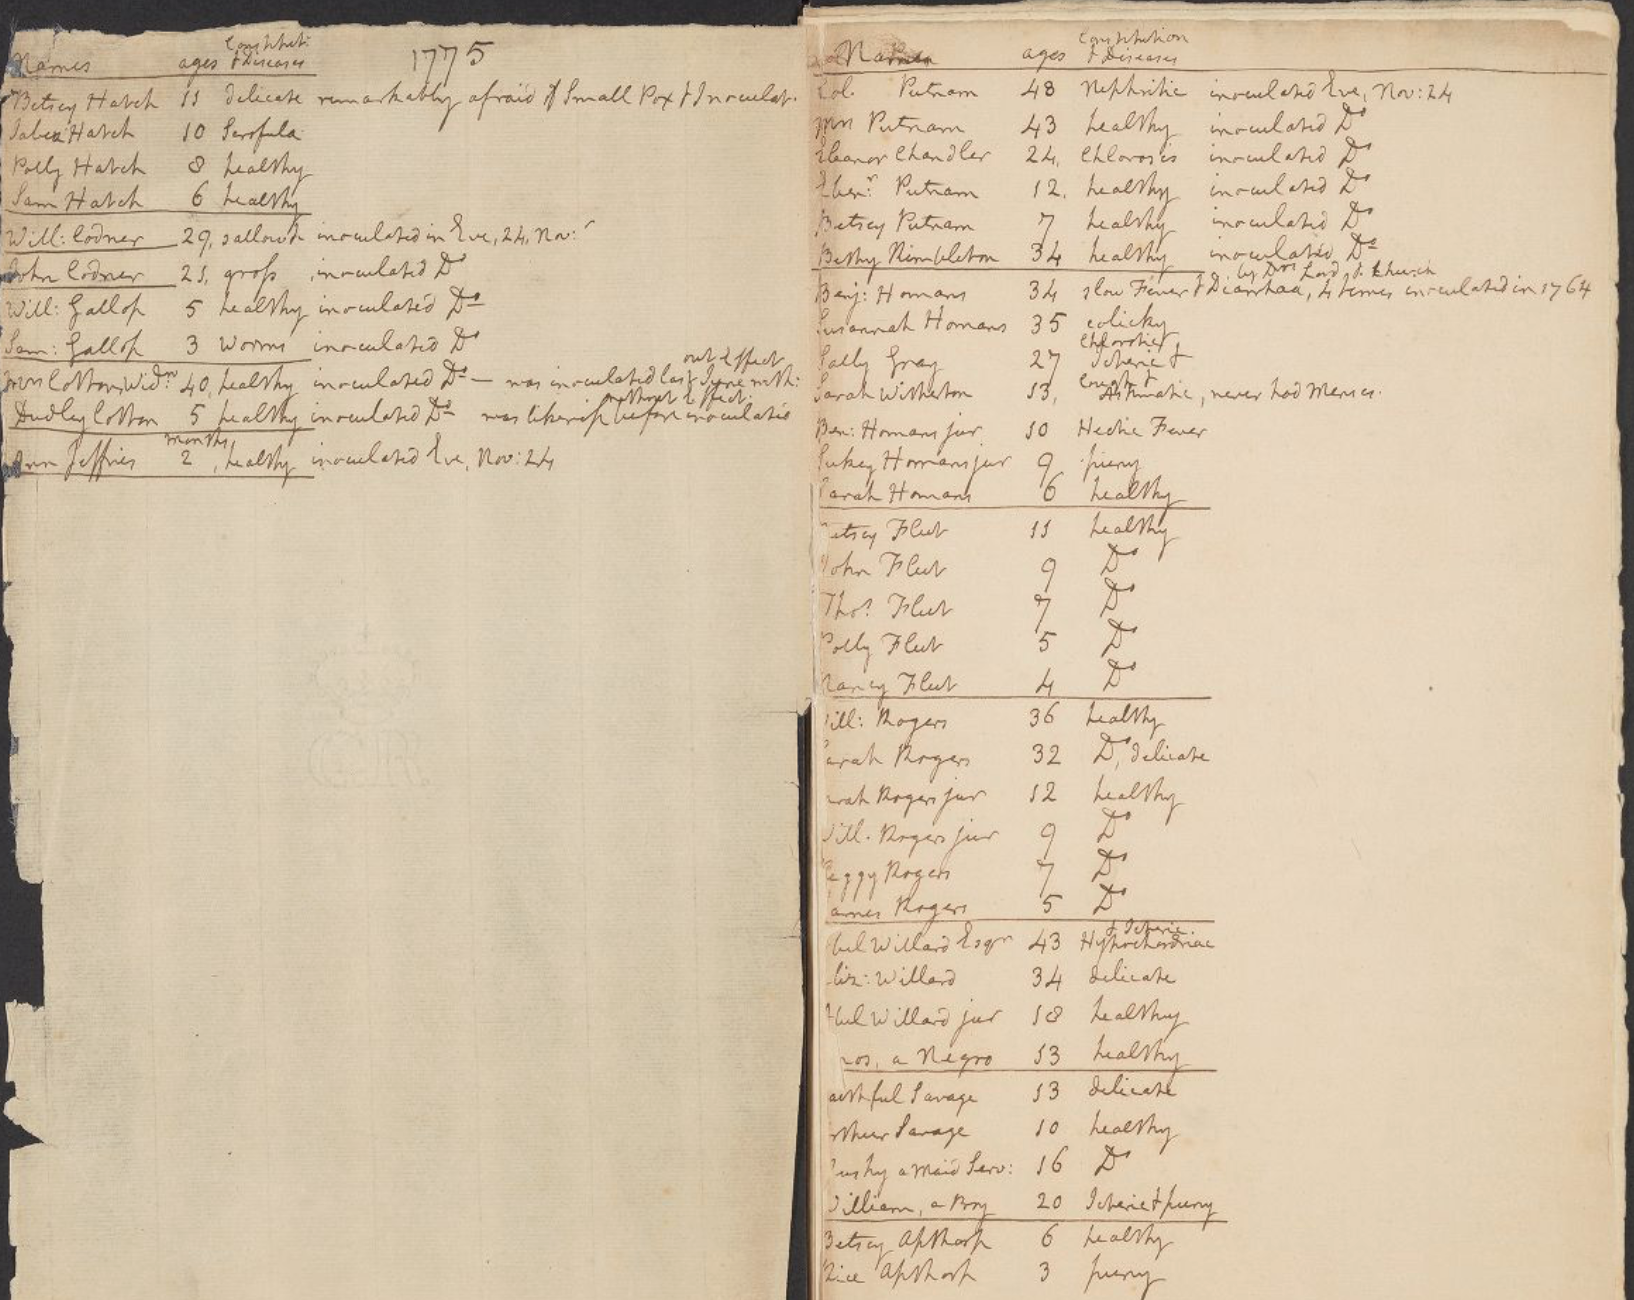 Constituti:
Names ages & Diseases 1775
Betsey Hatch 11 delicate remarkably afraid of Small Pox & Inoculat.
Hatch 10 Scrofula
Polly Hatch 8 healthy
Sam Hatch 6 healthy
Will: Codner 29, sallow & inoculated in Eve, 24, Nov:r
John Codner 21, gross, inoculated Do
Will: Gallop 5 healthy inoculated Do
Sam: Gallop 3 Worms inoculated Do
out Effect
Mrs Cotton, Widw 40, healthy inoculated Do — was inoculated last June with:
without Effect.
Dudley Cotton 5 healthy inoculated Do was likewise before inoculated
months,
Ann Jeffries 2, healthy inoculated Eve, Nov: 24
Constitution
Names ages & Diseases
Col. Putnam 48 Nephritic inoculated Eve, Nov: 24
Mrs Putnam 43 healthy inoculated Do
Eleanor Chandler 24, Chlorosis inoculated Do
Eben:r Putnam 12, healthy inoculated Do
Betsey Putnam 7 healthy inoculated Do
Bethy Nimbleton 34 healthy inoculated Do
by Drs Lord & Church
Benj: Homans 34 slow Fever & Diarrhaea, 4 times inoculated in 1764
Susannah Homans 35 colicky
Chlorotic,
Sally Gray 27 Icteric &
cough &
Sarah Witherton 13, Asthmatic, never had Menses.
Ben: Homans jur. 10 Hectic Fever
Sukey Homans jur 9 puny
Sarah Homans 6 healthy
etsey Fleet 11 healthy
John Fleet 9 Do
Thos. Fleet 7 Do
Polly Fleet 5 Do
Nancy Fleet 4 Do
ill: Rogers 36 healthy
arah Rogers 32 Do, delicate
arah Rogers jur 12 healthy
Will. Rogers jur 9 Do
Peggy Rogers 7 Do
ames Rogers 5 Do
& Icteric.
bel Willard Esqr 43 Hypochondriac
liz: Willard 34 delicate
bel Willard jur 18 healthy
nos, a Negro 13 healthy
aithful Savage 13 delicate
rthur Savage 10 healthy
ushy a Maid Serv: 16 Do
William, a Boy 20 Icteric & puny
Betsey Apthorp 6 healthy
Rice Apthorp 3 puny